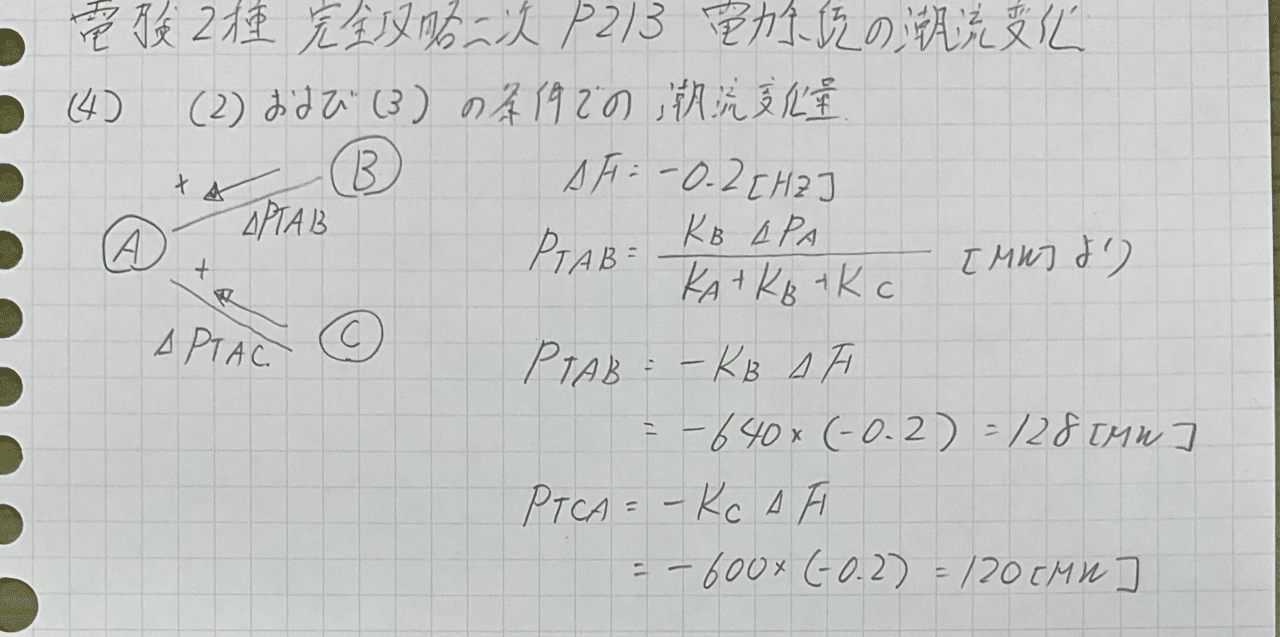 電験2種 完全攻略二次 P213 電力系統の潮流変化
(4) (2)および(3)の条件での潮流変化量
B
+
ΔPTAB
A
+
C
ΔPTAC.
ΔF1=-0.2[HZ]
PTAB= KB ΔPA / KA+KB+KC [MW]より
PTAB = -KB ΔF1
= -640×(-0.2) =128[MW]
PTCA = -KC ΔF1
= -600×(-0.2) =120[MW]